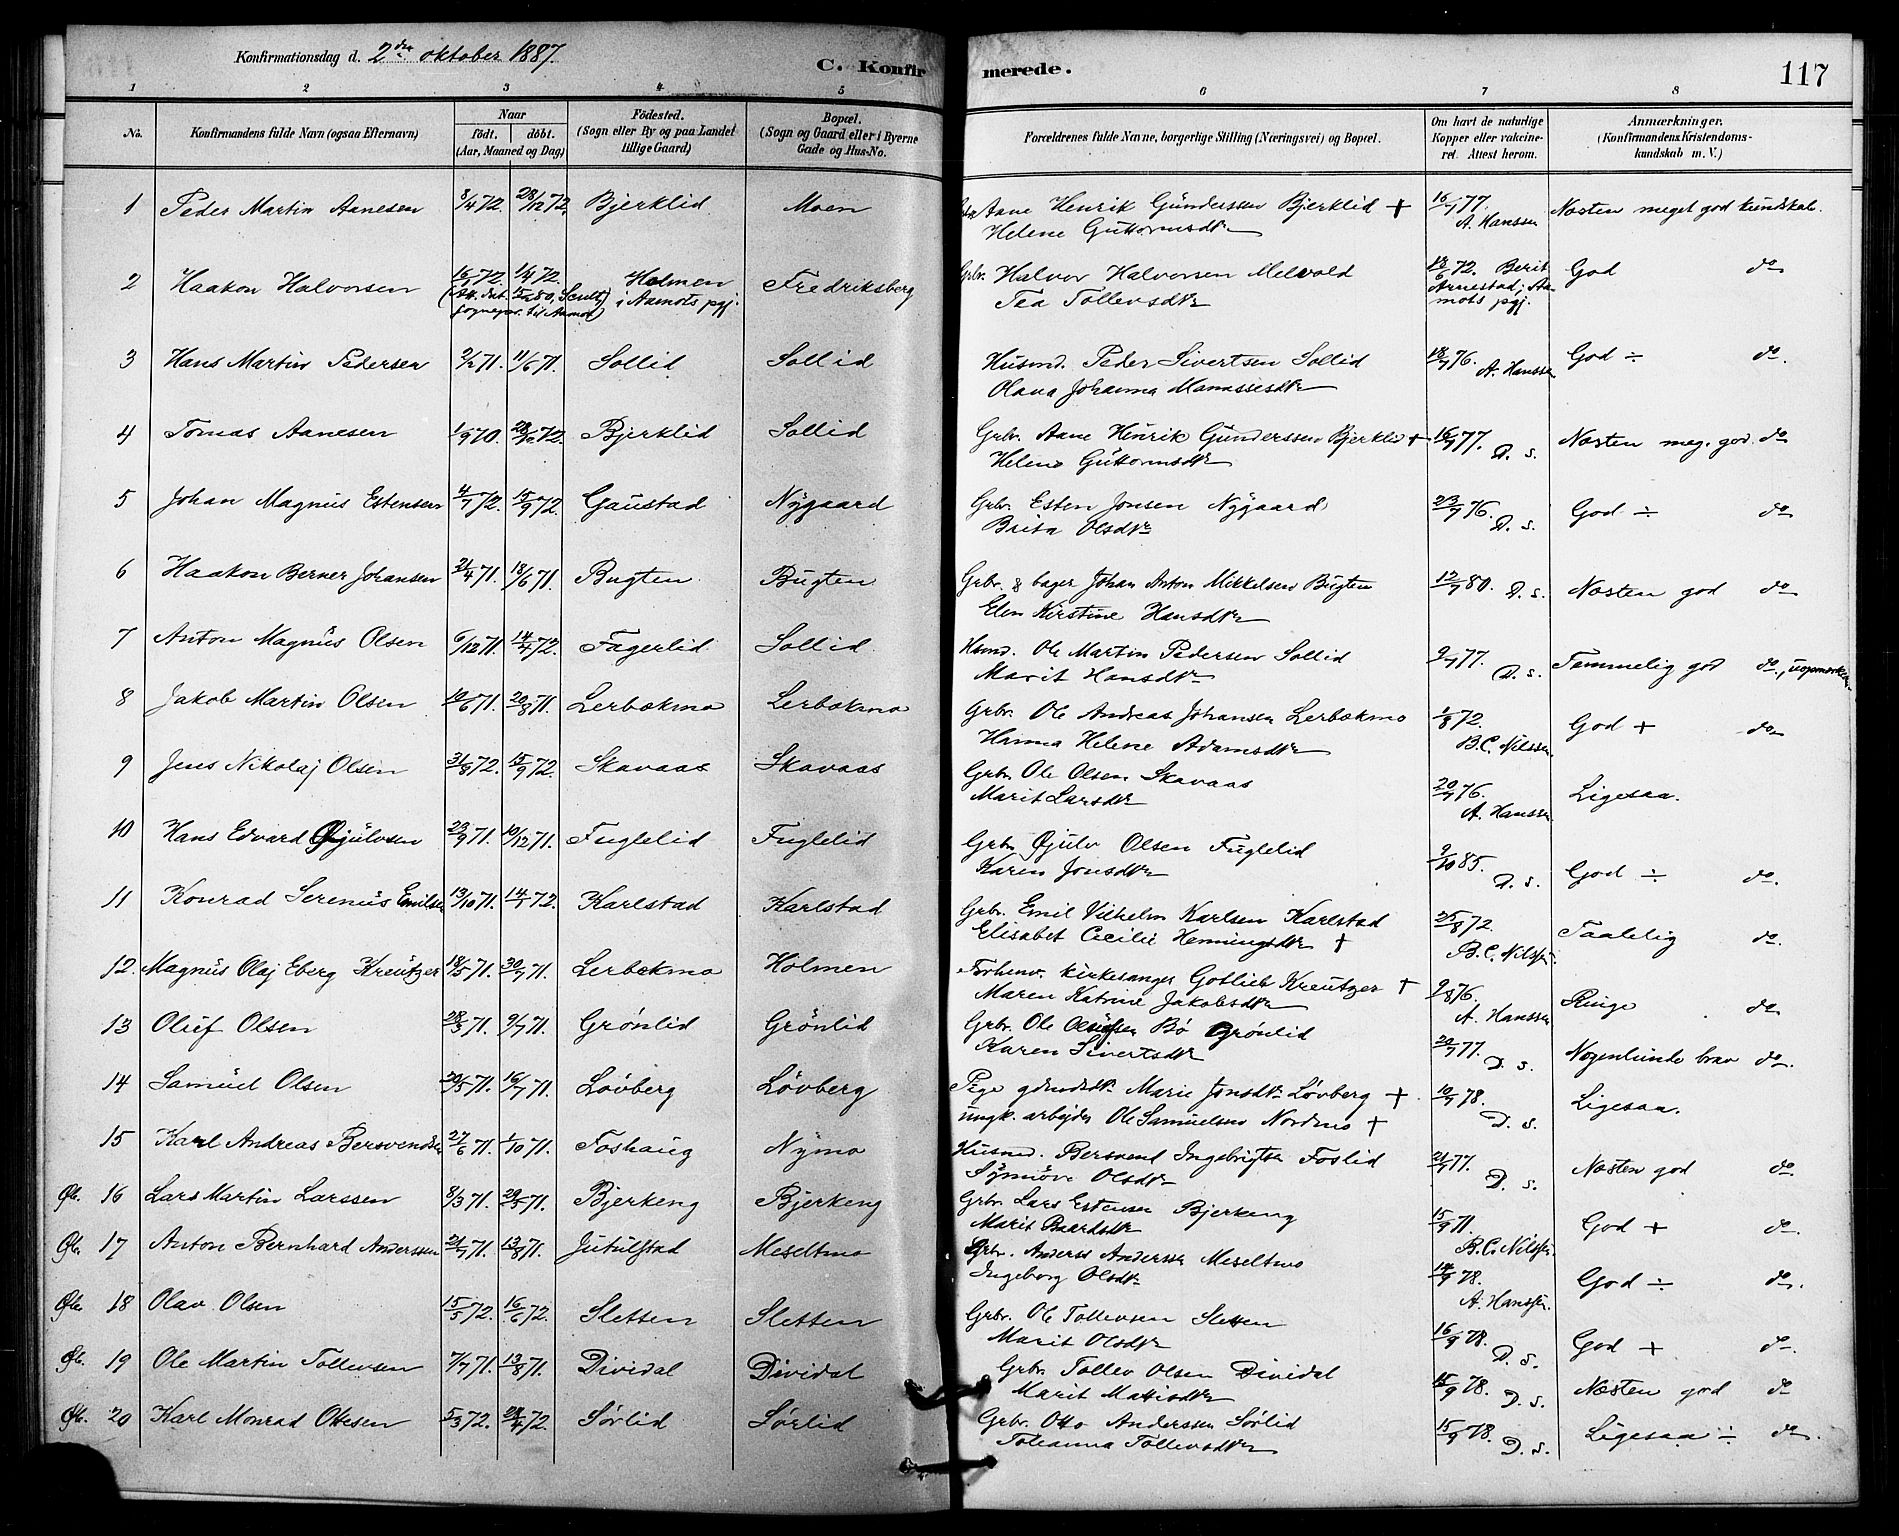 Konfirmationsdag d. 2den oktober 1887.
C. Konfirmerede.
117
1 2 3 4 5 6 7 8
No. Konfirmandens fulde Navn (ogsaa Efternavn) Naar födt. döbt. (Aar, Maaned og Dag) Födested. (Sogn eller By og paa Landet tillige Gaard) Bopæl. (Sogn og Gaard eller i Byerne Gade og Hus-No. Forældrenes fulde Navne, borgerlige Stilling (Næringsvei) og Bopæl. Om havt de naturlige Kopper eller vakcineret. Attest herom. Anmærkninger. (Konfirmandens Kristendomskundskab m. V.)
1 Peder Martin Aanesen 8/4 72. 28/12 72. Bjerklid Moen Aane Henrik Gunderssen Bjerklid + 16/7 77. Næsten meget god kundskab.
Helene Guttormsdtr A. Hanssen
2 Haakon Halvorsen 16/2 72. 1/4 72. Holmen i Aamots pgj. Fredriksberg Grbr. Halvor Halvorsen Melvold 18/6 72. Berit Arnestad, Aamots pgj. God do
Tea Tollevsdtr
3 Hans Martin Pedersen 2/2 71. 11/6 71. Sollid Sollid Husmd. Peder Sivertsen Sollid 18/7 76. A. Hanssen God ÷ do.
Olava Johanna Manassesdtr
4 Tomas Aanesen 1/9 70. 28/12 72. Bjerklid Sollid Grbr. Aane Henrik Gunderssen Bjerklid + 16/7 77. D. s. Næsten meg. god. do
Helene Guttormsdtr
5 Johan Magnus Estensen 4/7 72. 15/9 72. Gaustad Nygaard Grbr. Esten Jonsen Nygaard 23/7 76. D. s. God ÷ do
Brita Olsdtr
6 Haakon Berner Johansen 21/4 71. 18/6 71. Bugten Bugten Grbr. & bager Johan Anton Mikkelsen Bugten 12/7 80. D. s. Næsten god do
Elen Kirstine Hansdtr
7 Anton Magnus Olsen 6/12 71. 14/4 72. Fagerlid Sollid Husmd. Ole Martin Pedersen Sollid 9/7 77. D. s. Temmelig god do, uopmærksom
Marit Hansdtr
8 Jakob Martin Olsen 10/6 71. 20/8 71. Lerbækmo Lerbækmo Grbr. Ole Andreas Johansen Lerbækmo 1/8 72. B.C. Nilssen God + do
Hanna Helene Adamsdtr
9 Jens Nikolaj Olsen 31/8 72. 15/9 72. Skavaas Skavaas Grbr. Ole Olsen Skavaas 20/7 76. A. Hanssen Ligesaa.
Marit Larsdtr
10 Hans Edvard Øjulvsen 23/9 71. 10/12 71. Fuglelid Fuglelid Grbr. Øjulv Olsen Fuglelid 9/10 85. D. s. God ÷ do.
Karen Jonsdtr
11 Konrad Serenius Emilsen 13/10 71. 14/7 72. Karlstad Karlstad Grbr. Emil Vilhelm Karlsen Karlstad 25/8 72. B.C. Nilssen. Taalelig do.
Elisabet Cecilie Henningsdtr +
12. Magnus Olaj Eberg Kreutzer 18/5 71. 30/7 71. Lerbækmo Holmen Forhenv. kirkesanger Gotlieb Kreutzer + 9/8 76. A. Hanssen Ringe do
Maren Katrine Jakobsdtr
13 Oluf Olsen 28/3 71. 9/7 71. Grønlid Grønlid Grbr. Ole Olufsen Bø Grønlid 20/7 77. D. s. Nogenlunde brav do.
Karen Sivertsdtr
14 Samuel Olsen 20/5 71. 16/7 71. Løvberg Løvberg Pige Marie Jonsdtr Løvberg + 10/7 78. D. s. Ligesaa.
ungk. arbejder Ole Samuelsen Nordmo +
15 Karl Andreas Bersvendsen 27/6 71. 1/10 71. Foshaug Nymo Husmd. Bersvend Ingebrigtsen Foslid 21/7 77. D. s. Næsten god do
Synnøve Olsdtr
Øb. 16 Lars Martin Larssen 8/3 71. 29/5 71. Bjerkeng Bjerkeng Grbr. Lars Estensen Bjerkeng 15/9 71. B.C. Nilssen. God + do.
Marit Baardsdtr
Øb. 17 Anton Bernhard Anderssen 21/7 71. 13/8 71. Jutulstad Meseltmo Grbr. Anders Anderssen Meseltmo 14/9 78. A. Hanssen. God ÷ do.
Ingeborg Olsdtr
Øb. 18 Olav Olsen 15/5 72. 16/6 72. Sletten Sletten Grbr. Ole Tollevsen Sletten 16/9 78. D. s. God + do.
Marit Olsdtr
Øb. 19 Ole Martin Tollevsen 7/7 71. 13/8 71. Dividal Dividal Grbr. Tollev Olsen Dividal 15/9 78. D. s. Næsten god do
Marit Mattisdtr
Øb. 20 Karl Monrad Ottesen 5/3 72. 28/4 72. Sørlid Sørlid Grbr. Otto Anderssen Sørlid 15/9 78. D. s. Ligesaa ÷ do.
Johanna Tollevsdtr